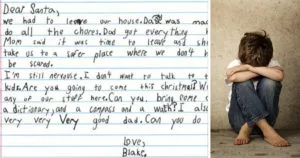 Dear Santa,
we had to leave our house. Dad was mad
do all the chores. Dad got every thing
Mom said it was time to leave and
take us to a safer place where we don't
be scared.
I'm still nervous. I dont want to talk to
kids. Are you going to come this christmas?
any of our stuff here. Can you bring some
a dictionary, and a compass and a watch? I
very very very good dad. Can you do
love,
Blake.